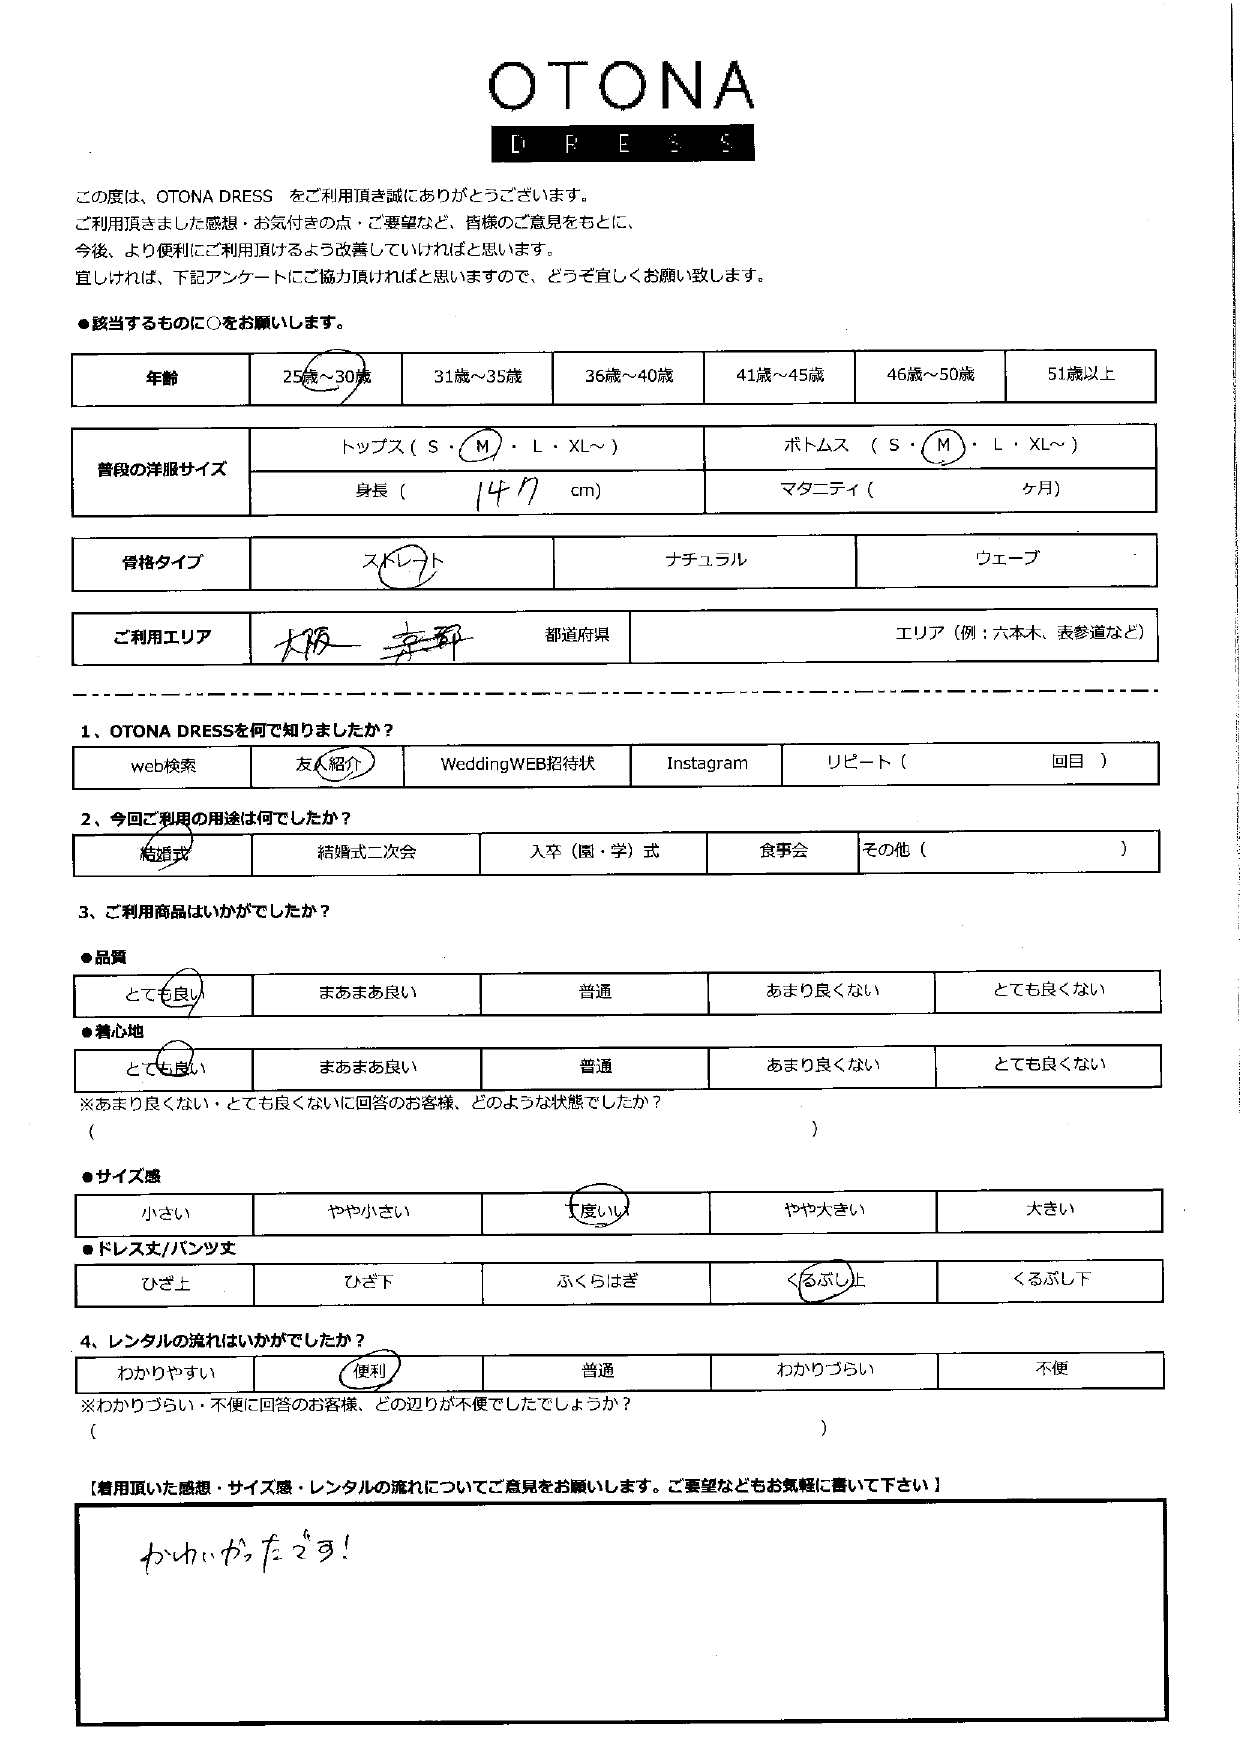 OTONA
DRESS
この度は、OTONA DRESS をご利用頂き誠にありがとうございます。
ご利用頂きました感想・お気付きの点・ご要望など、皆様のご意見をもとに、
今後、より便利にご利用頂けるよう改善していければと思います。
宜しければ、下記アンケートにご協力頂ければと思いますので、どうぞ宜しくお願い致します。
●該当するものに○をお願いします。
年齢 25歳～30歳 31歳～35歳 36歳～40歳 41歳～45歳 46歳～50歳 51歳以上
普段の洋服サイズ トップス ( S ・ M ・ L ・ XL～ ) ボトムス ( S ・ M ・ L ・ XL～ )
身長 ( 147 cm) マタニティ ( ケ月)
骨格タイプ ストレート ナチュラル ウェーブ
ご利用エリア 大阪 京都 都道府県 エリア（例：六本木、表参道など）
1、OTONA DRESSを何で知りましたか？
web検索 友人紹介 WeddingWEB招待状 Instagram リピート ( 回目 )
2、今回ご利用の用途は何でしたか？
結婚式 結婚式二次会 入卒（園・学）式 食事会 その他 ( )
3、ご利用商品はいかがでしたか？
●品質
とても良い まあまあ良い 普通 あまり良くない とても良くない
●着心地
とても良い まあまあ良い 普通 あまり良くない とても良くない
※あまり良くない・とても良くないに回答のお客様、どのような状態でしたか？
( )
●サイズ感
小さい やや小さい 丁度いい やや大きい 大きい
●ドレス丈/パンツ丈
ひざ上 ひざ下 ふくらはぎ くるぶし上 くるぶし下
4、レンタルの流れはいかがでしたか？
わかりやすい 便利 普通 わかりづらい 不便
※わかりづらい・不便に回答のお客様、どの辺りが不便でしたでしょうか？
( )
【着用頂いた感想・サイズ感・レンタルの流れについてご意見をお願いします。ご要望などもお気軽に書いて下さい】
かわいかったです！